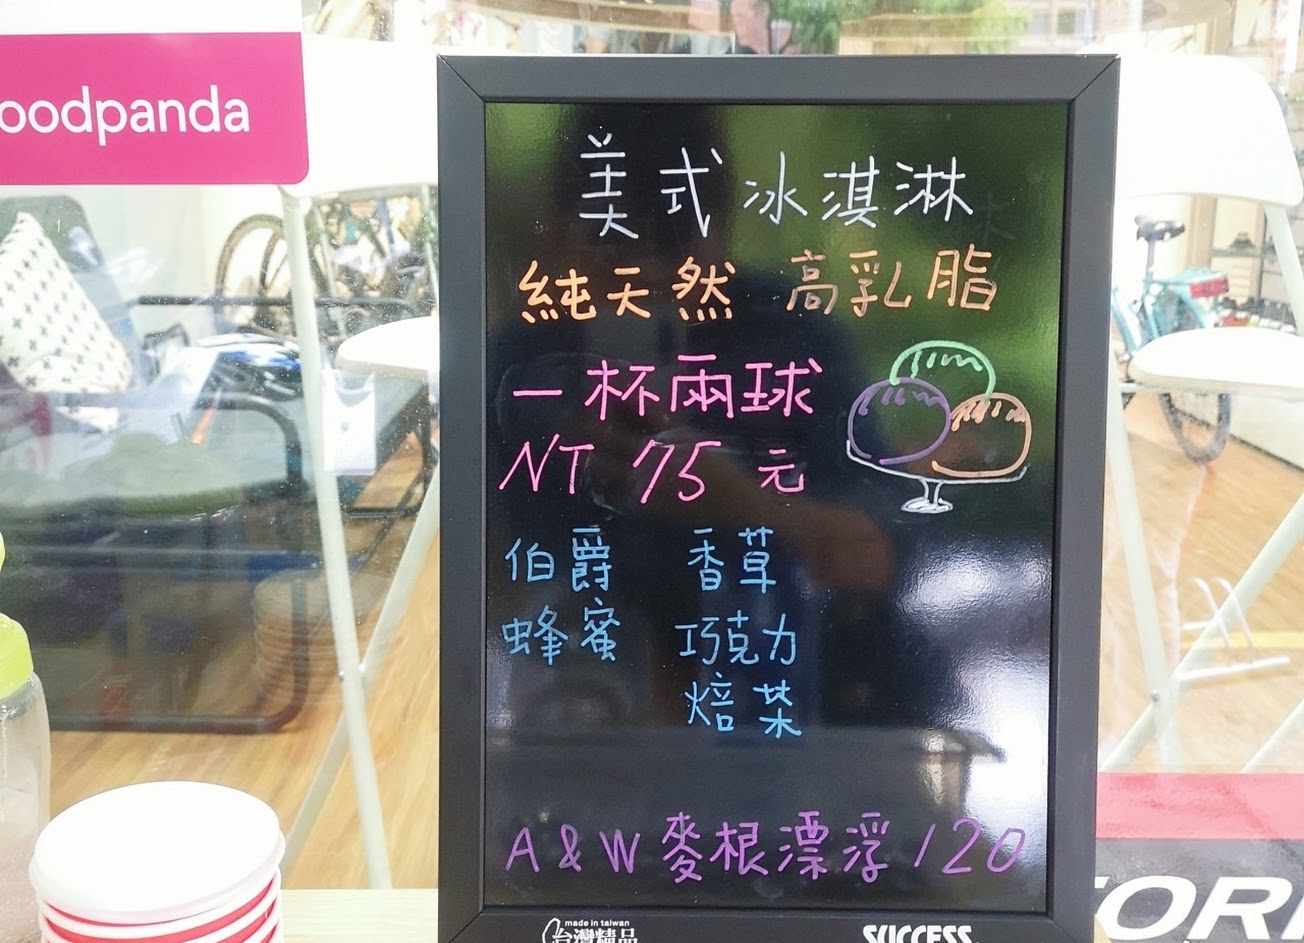 oodpanda
美式冰淇淋
純天然 高乳脂
一杯兩球
NT 75 元
伯爵 香草
蜂蜜 巧克力
焙茶
A & W 麥根漂浮 120
made in taiwan
台灣精品
SUCCESS